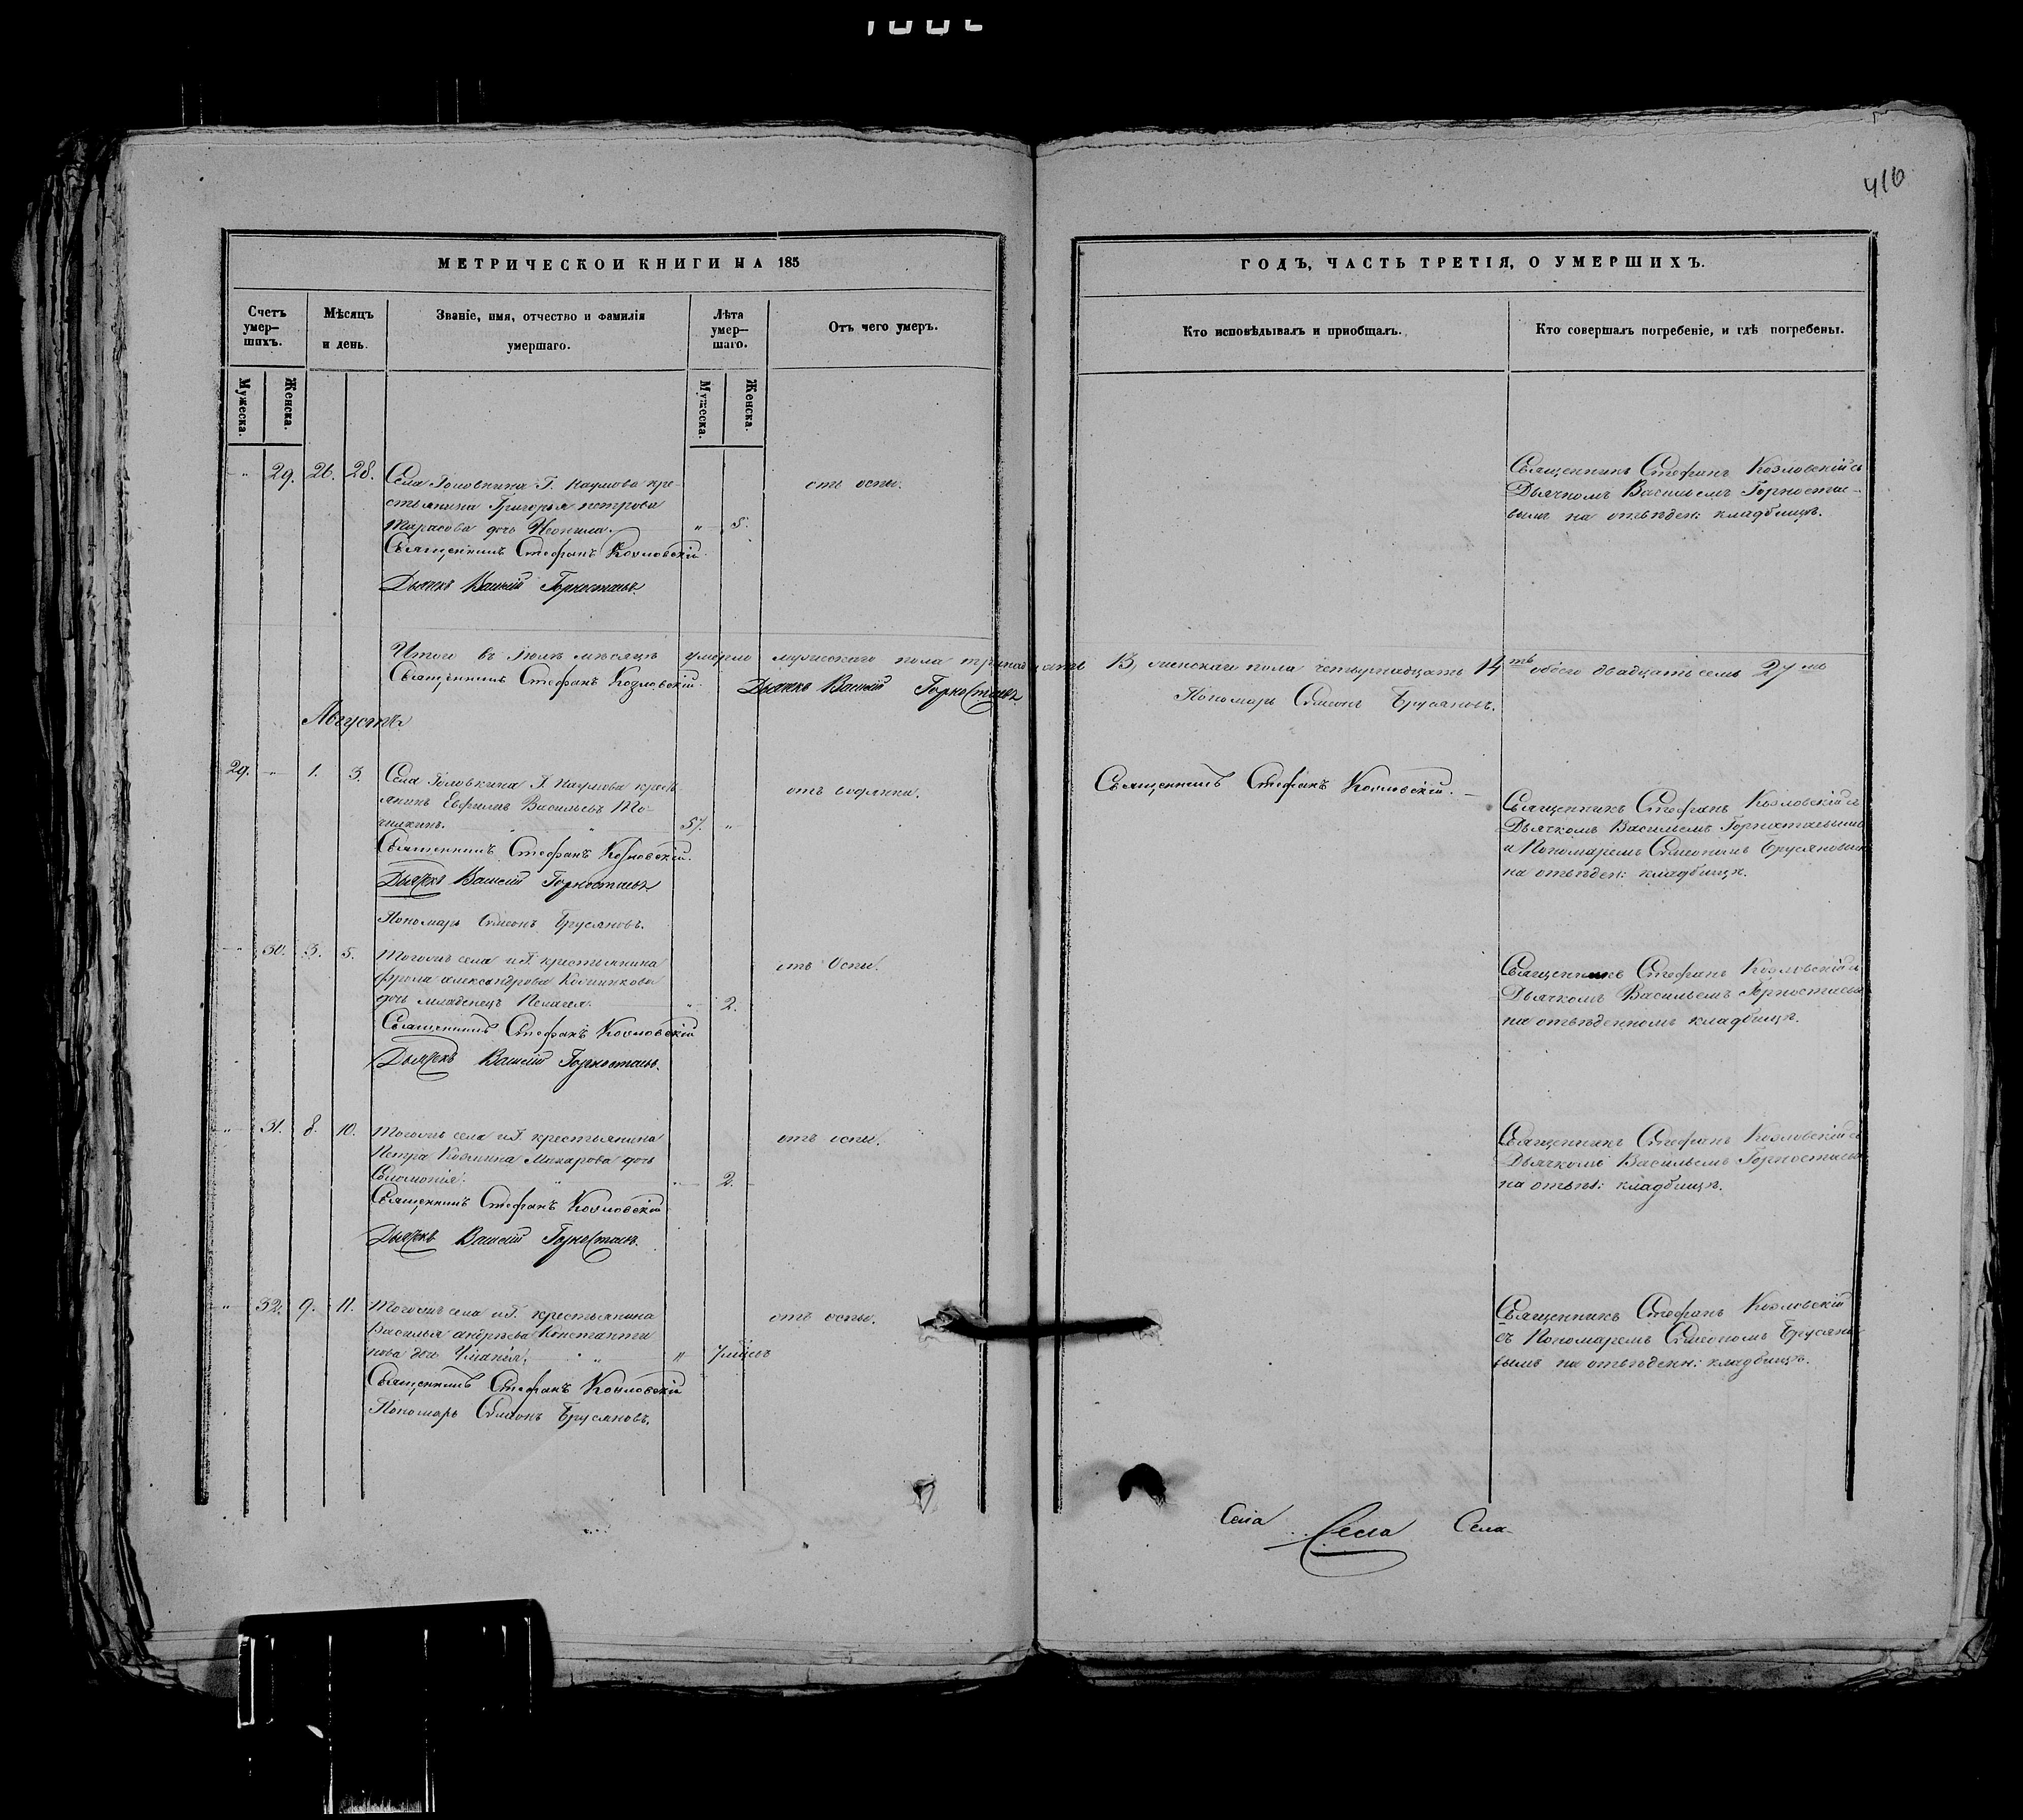 416
МЕТРИЧЕСКОЙ КНИГИ НА 185
ГОДЪ, ЧАСТЬ ТРЕТІЯ, О УМЕРШИХЪ.
Счетъ умер-
шихъ.
Мѣсяцъ
и день.
Званіе, имя, отчество и фамилія
умершаго.
Лѣта
умер-
шаго.
Отъ чего умеръ.
Кто исповѣдывалъ и приобщалъ.
Кто совершалъ погребеніе, и гдѣ погребены.
Мужеска.
Женска.
Мужеска.
Женска.
" 29. 26. 28. Села Головкина Г. Наумова кре-
стьянина Григорья петрова
Тарасова дочь Неонила. " 5.
отъ оспы.
Священникъ Стефанъ Козловскій
Дьячекъ Василій Горностаевъ
Священникъ Стефанъ Козловскій съ
Дьячкомъ Васильемъ Горностае-
вымъ на отвѣден: кладбищѣ.
Итого въ Іюлѣ мѣсяцѣ умерло мужескаго пола тринадцать 13, женскаго пола четырнадцать 14ть обоего двадцать семь 27мь
Священникъ Стефанъ Козловскій. Дьячекъ Василій Горностаевъ
Пономарь Симеонъ Брусяновъ.
Августъ
29. " 1. 3. Села Головкина Г. Наумова кресть
янинъ Евфимъ Васильевъ
57. "
отъ водянки.
Священникъ Стефанъ Козловскій.
Дьячекъ Василій Горностаевъ
Пономарь Симеонъ Брусяновъ.
Священникъ Стефанъ Козловскій.
Священникъ Стефанъ Козловскій съ
Дьячкомъ Васильемъ Горностаевымъ
и Пономаремъ Симеономъ Брусяновым
на отвѣден: кладбищѣ.
" 30. 3. 5. Тогожъ села и Г. крестьянина
фрола александрова
дочь младенецъ Пелагея. " 2.
отъ Оспы.
Священникъ Стефанъ Козловскій
Дьячекъ Василій Горностаевъ.
Священникъ Стефанъ Козловскій съ
Дьячкомъ Васильемъ Горностаевы
на отвѣденномъ кладбищѣ.
" 31. 8. 10. Тогожъ села и Г. крестьянина
Петра Козмина Макарова дочь
Соломонія. " 2.
отъ оспы.
Священникъ Стефанъ Козловскій
Дьячекъ Василій Горностаевъ.
Священникъ Стефанъ Козловскій съ
Дьячкомъ Васильемъ Горностаевы
на отвѣ: кладбищѣ.
" 32. 9. 11. Тогожъ села и Г. крестьянина
Василья андреева Константи
нова дочь " 7 мѣсѣцъ
отъ оспы.
Священникъ Стефанъ Козловскій
Пономарь Симеонъ Брусяновъ.
Священникъ Стефанъ Козловскій
съ Пономаремъ Симеономъ Брусяно-
вымъ на отвѣденн: кладбищѣ.
Села Села Села